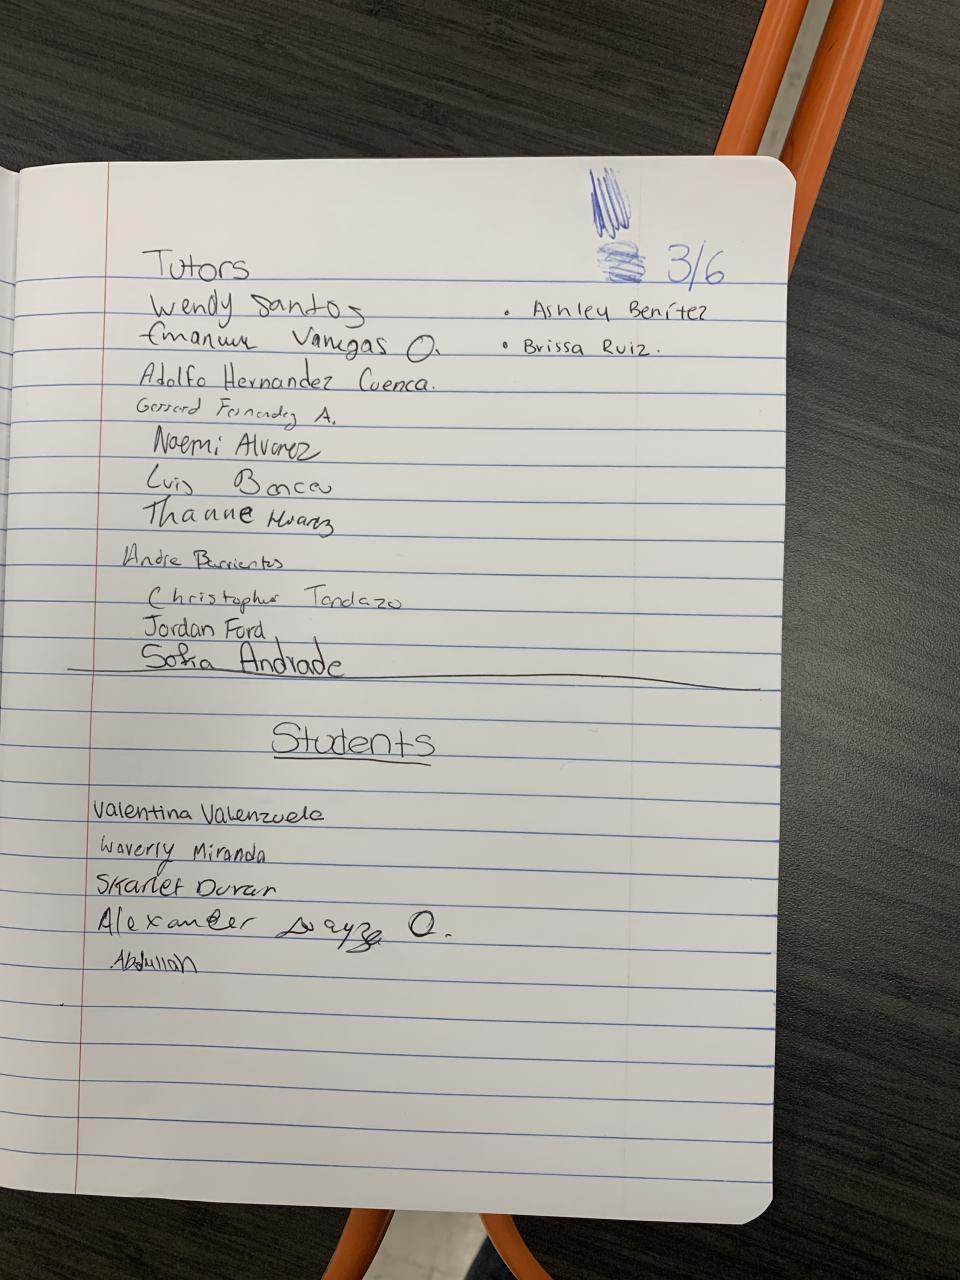 3/6
Tutors
Wendy Santos
Emanuel Vanegas O.
Adolfo Hernandez Cuenca.
Gerrard Fernandez A.
Noemi Alvarez
Luis
Thanne Alvarez
Andre Barrientos
Christopher Tandazo
Jordan Ford
Sofia Andrade
• Ashley Benítez
• Brissa Ruiz.
Students
Valentina Valenzuela
Waverly Miranda
Skarlet Duran
Alexander O.
Abdullah